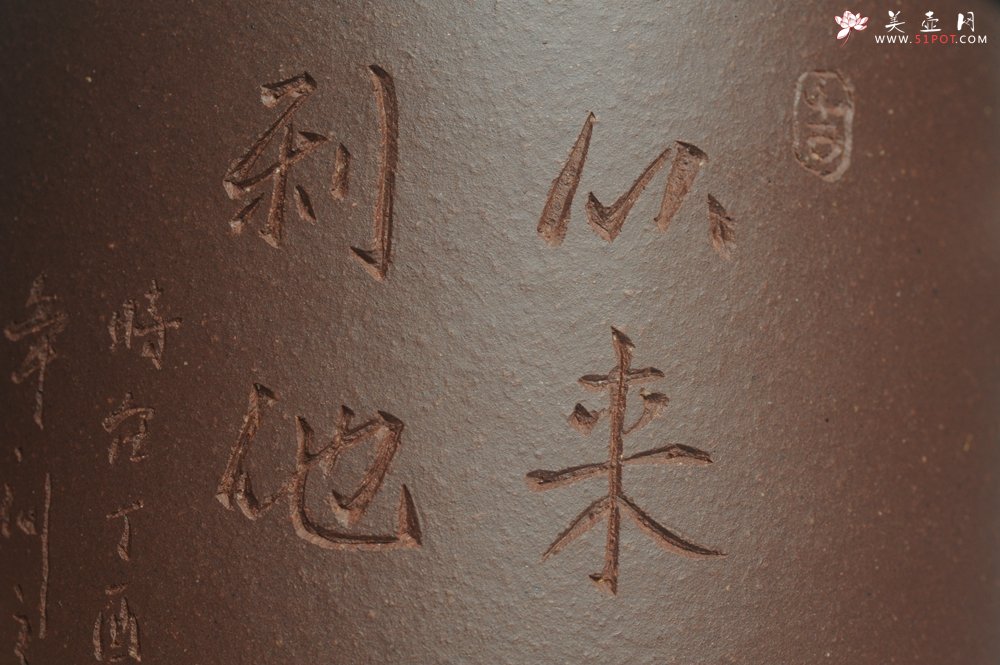 美壶网
WWW.51POT.COM
以来
利他
時在丁酉
年